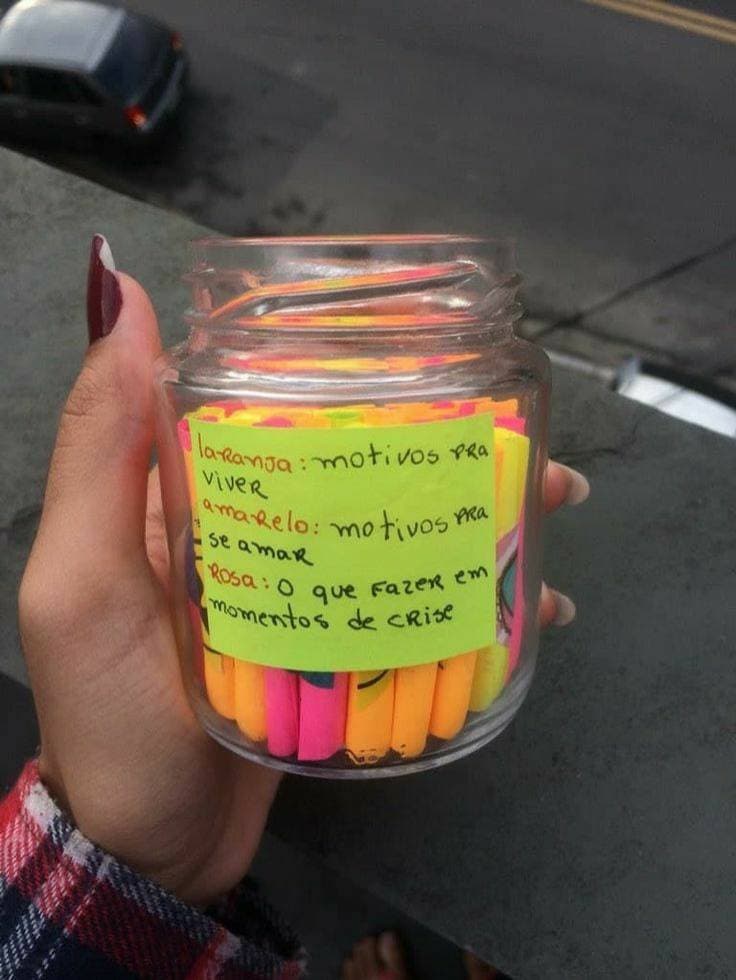 laranja: motivos pra
viver
amarelo: motivos pra
se amar
Rosa: O que fazer em
momentos de crise